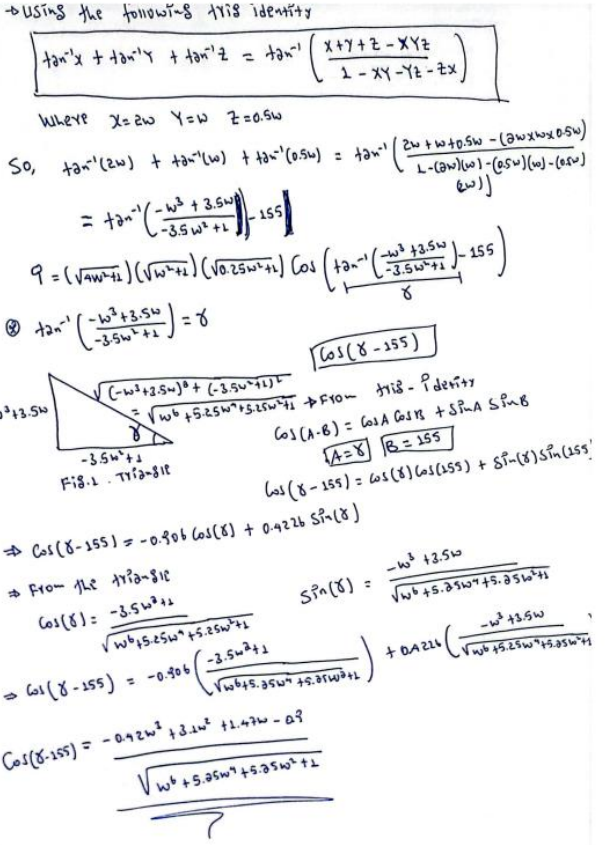 → Using the following trig identity
tan⁻¹x + tan⁻¹Y + tan⁻¹Z = tan⁻¹ ( (X+Y+Z - XYZ) / (1 - XY - YZ - ZX) )
Where X=2w Y=w Z=0.5w
So, tan⁻¹(2w) + tan⁻¹(w) + tan⁻¹(0.5w) = tan⁻¹ ( (2w + w + 0.5w - (2w×w×0.5w)) / (1-(2w)(w)-(0.5w)(w)-(0.5w)(2w)) )
= tan⁻¹ ( (-w³ + 3.5w) / (-3.5w² + 1) ) - 155
9 = (√4w²+1)(√w²+1)(√0.25w²+1) Cos ( tan⁻¹ ( (-w³+3.5w) / (-3.5w²+1) ) - 155 )
γ
⊗ tan⁻¹ ( (-w³+3.5w) / (-3.5w²+1) ) = γ
Cos(γ - 155)
√(-w³+3.5w)² + (-3.5w²+1)²
= √w⁶ + 5.25w⁴ + 5.25w²+1
→ From trig-identity
w³+3.5w
γ
-3.5w²+1
Fig.1. Triangle
Cos(A-B) = CosA CosB + SinA SinB
A=γ B=155
Cos(γ - 155) = Cos(γ) Cos(155) + Sin(γ) Sin(155)
⇒ Cos(γ-155) = -0.906 Cos(γ) + 0.4226 Sin(γ)
⇒ From the triangle
Cos(γ) = (-3.5w²+1) / √w⁶+5.25w⁴+5.25w²+1
Sin(γ) = (-w³+3.5w) / √w⁶+5.25w⁴+5.25w²+1
⇒ Cos(γ-155) = -0.906 ( (-3.5w²+1) / √w⁶+5.25w⁴+5.25w²+1 ) + 0.4226 ( (-w³+3.5w) / √w⁶+5.25w⁴+5.25w²+1 )
Cos(γ-155) = (-0.42w³ + 3.1w² + 1.47w - 0.9) / √w⁶+5.25w⁴+5.25w²+1